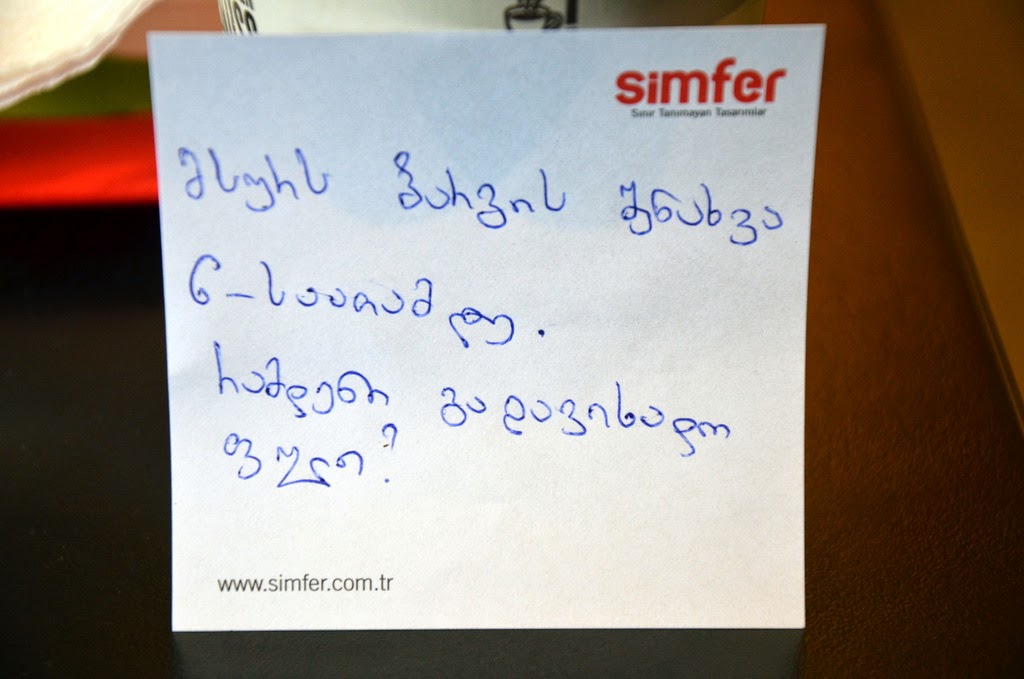 simfer
Sınır Tanımayan Tasarımlar
მსურს ბარგის შენახვა
6-საათამდე.
რამდენი გადავიხადო
ფული?
www.simfer.com.tr